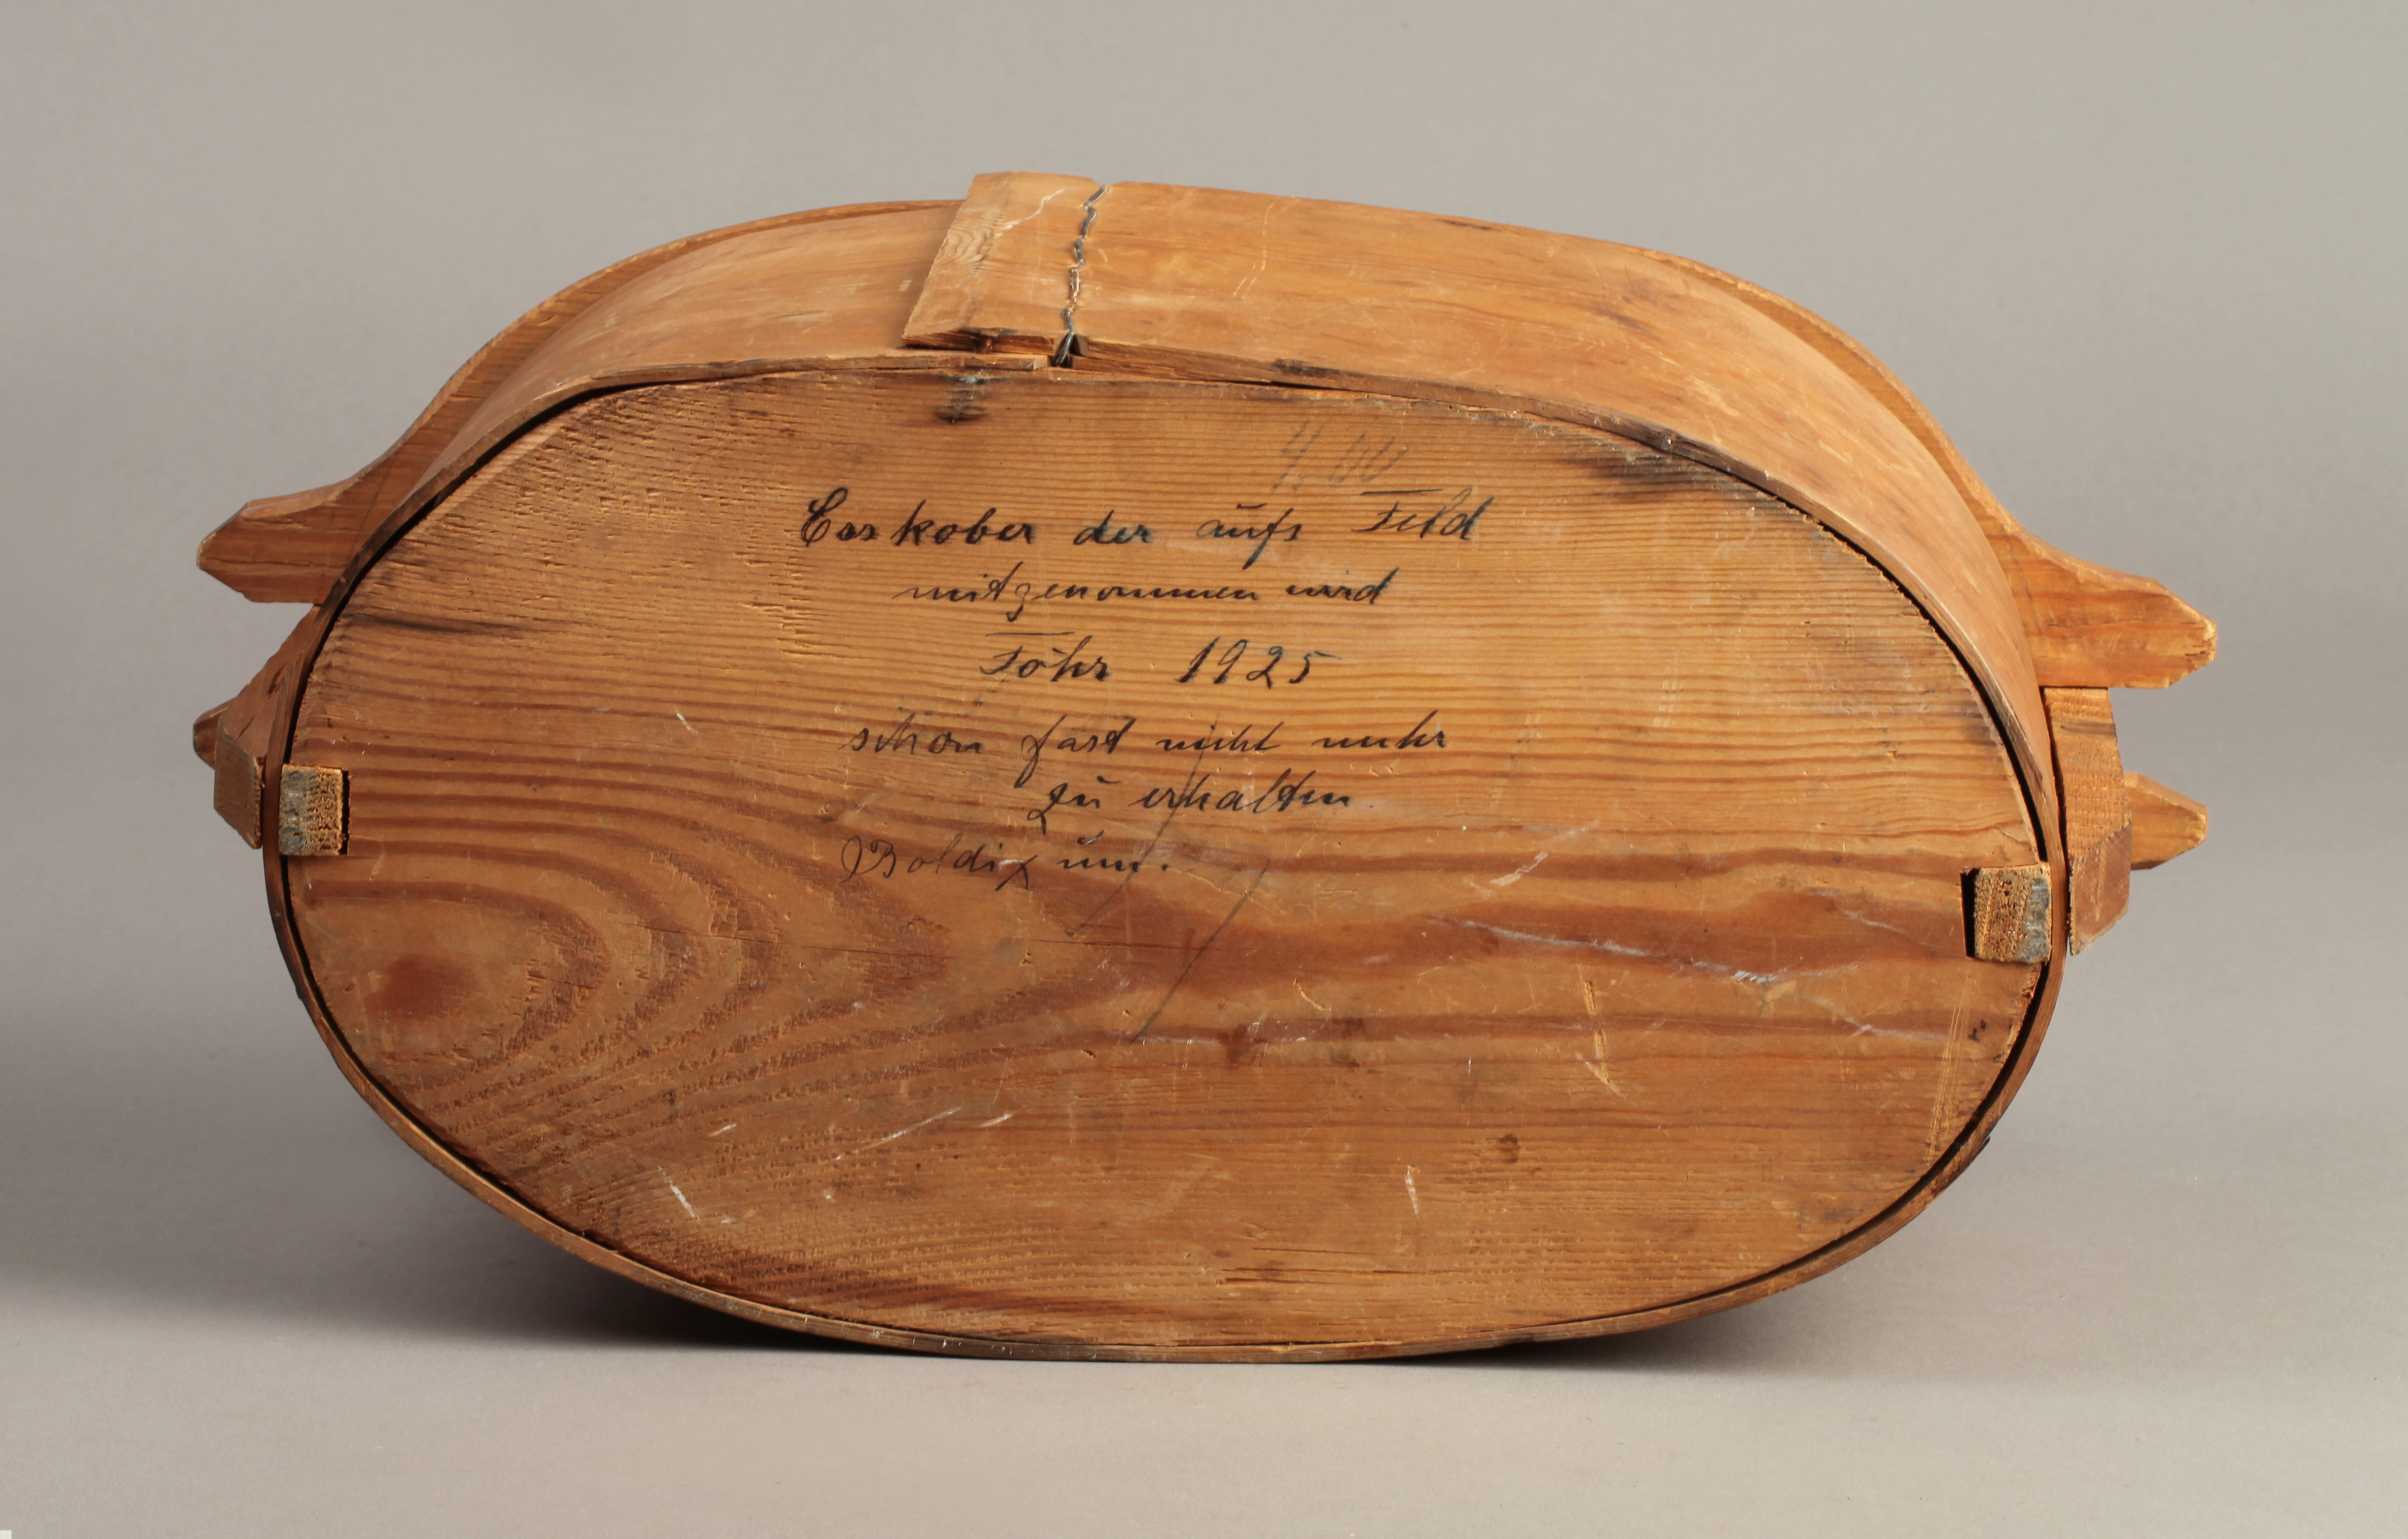 4,00
Esskober der aufs Feld
mitgenommen wird
Föhr 1925
schon fast nicht mehr
zu erhalten.
Boldixum.